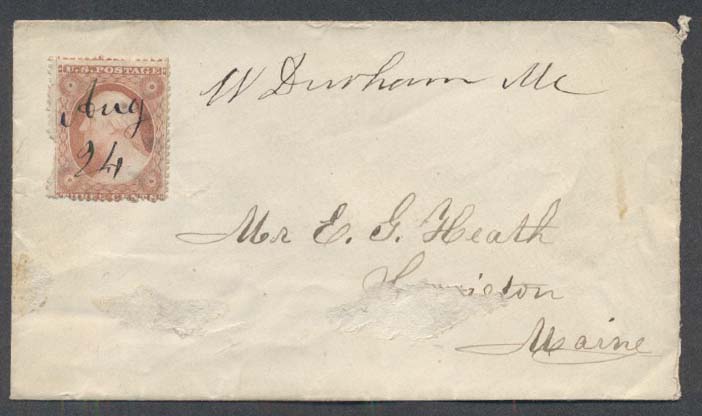 U.S. POSTAGE
Aug
24
THREE CENTS
W Durham Me
Mr E. G. Heath
Maine